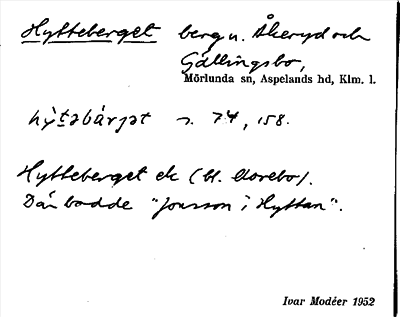 Hytteberget berg u. Åkeryd och
Gällingsbo,
Mörlunda sn, Aspelands hd, Klm. l.
hy̆təbárjət s. 74, 158.
Hytteberget ek (bl. Morebo).
Där bodde "Jonsson i Hyttan".
Ivar Modéer 1952